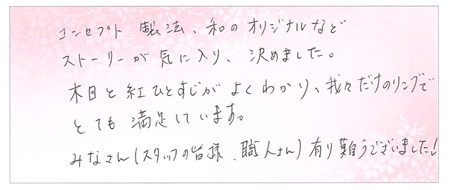 コンセプト 製法、和のオリジナルなど
ストーリーが気に入り、決めました。
木目と紅ひとすじがよくわかり、我々だけのリングで
とても満足しています。
みなさん(スタッフの皆様、職人さん)有り難うございました!